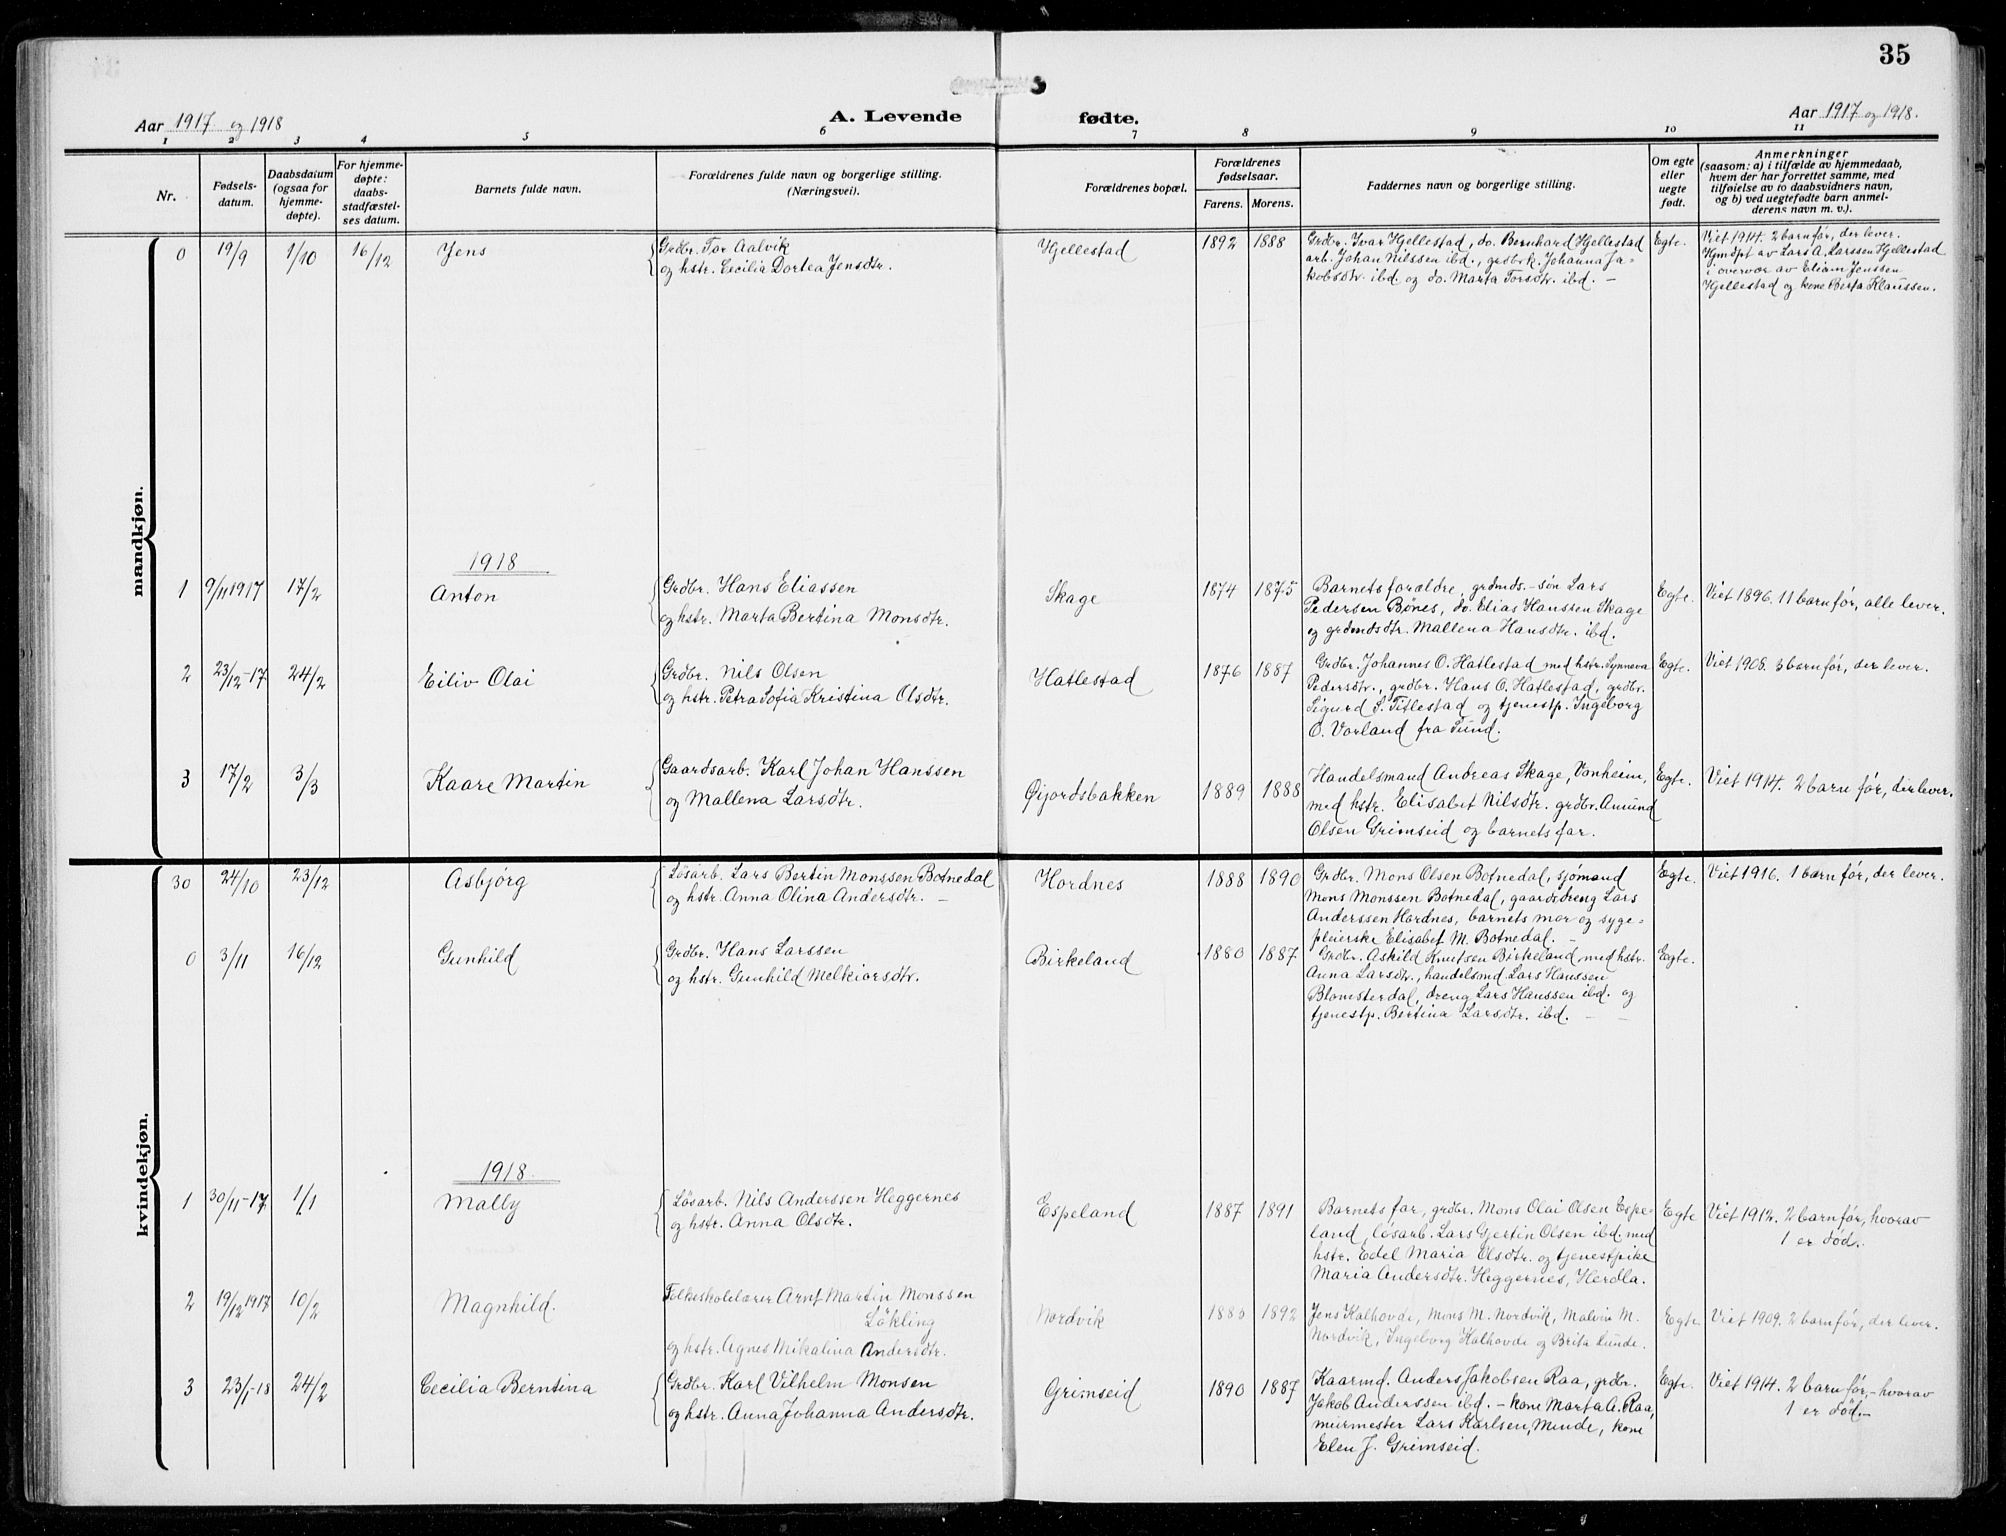 35
Aar 1917 og 1918
A. Levende
fødte.
Aar 1917 og 1918.
1 2 3 4 5 6 7 8 9 10 11
Nr.
Fødsels-
datum.
Daabsdatum
(ogsaa for
hjemme-
døpte).
For hjemme-
døpte:
daabs-
stadfæstel-
ses datum.
Barnets fulde navn.
Forældrenes fulde navn og borgerlige stilling.
(Næringsvei).
Forældrenes bopæl.
Forældrenes
fødselsaar.
Farens. Morens.
Faddernes navn og borgerlige stilling.
Om egte
eller
uegte
født.
Anmerkninger
(saasom: a) i tilfælde av hjemmedaab,
hvem der har forrettet samme, med
tilføielse av to daabsvidners navn,
og b) ved uegtefødte barn anmel-
derens navn m. v.).
mandkjøn.
0 19/9 1/10 16/12 Jens
Grdbr. Tor Aalvik
og hstr. Cecilia Dortea Jensdtr.
Hjellestad 1892 1888
Grdbr. Ivar Hjellestad, do. Bernhard Hjellestad
arb. Johan Nilssen ibd., grdbrk. Johanna Ja-
kobsdtr. ibd. og do. Marta Torsdtr. ibd. –
Egte.
Viet 1914. 2 barn før, der lever.
Hjmdøpt av Lars A. Larssen Hjellestad
i overvær av Eliam Jenssen
Hjellestad og kone Berta Klaussen.
1918
1 9/11 1917 17/2 Anton
Grdbr. Hans Eliassen
og hstr. Marta Bertina Monsdtr.
Skage 1874 1875
Barnets forældre, grdmds.-søn Lars
Pedersen Bønes, do. Elias Hanssen Skage
og grdmdsdtr. Mallena Hansdtr. ibd.
Egte. Viet 1896. 11 barn før, alle lever.
2 23/12-17 24/2 Eiliv Olai
Grdbr. Nils Olsen
og hstr. Petra Sofia Kristina Olsdtr.
Hatlestad 1876 1887
Grdbr. Johannes O. Hatlestad med hstr. Synneva
Pedersdtr., grdbr. Hans O. Hatlestad, grdbr.
Sigurd S. Titlestad og tjenestp. Ingeborg
O. Vorland fra Sund.
Egte. Viet 1908. 3 barn før, der lever.
3 17/2 3/3 Kaare Martin
Gaardsarb. Karl Johan Hanssen
og Mallena Larsdtr.
Øijordsbakken 1889 1888
Handelsmand Andreas Skage, Vanheim,
med hstr. Elisabet Nilsdtr. grdbr. Amund
Olsen Grimseid og barnets far.
Egte. Viet 1914. 2 barn før, der lever.
kvindekjøn.
30 24/10 23/12 Asbjørg
Løsarb. Lars Bertin Monssen Botnedal
og hstr. Anna Olina Andersdtr. –
Hordnes 1888 1890
Grdbr. Mons Olsen Botnedal, sjømand
Mons Monssen Botnedal, gaardsdreng Lars
Anderssen Hordnes, barnets mor og syge-
pleierske Elisabet M. Botnedal. –
Egte. Viet 1916. 1 barn før, der lever.
0 3/11 16/12 Gunhild
Grdbr. Hans Larssen
og hstr. Gunhild Melkiorsdtr.
Birkeland 1880 1887
Grdbr. Askild Knutsen Birkeland, med hstr.
Anna Larsdtr., handelsmd. Lars Hanssen
Blomsterdal, dreng Lars Hanssen ibd. og
tjenestp. Bertina Larsdtr. ibd. – –
Egte.
1918.
1 30/11-17 1/1 Mally
Løsarb. Nils Anderssen Heggernes
og hstr. Anna Olsdtr.
Espeland 1887 1891
Barnets far, grdbr. Mons Olai Olsen Espe-
land, løsarb. Lars Gjertin Olsen ibd. med
hstr. Edel Maria Olsdtr. og tjenestpike
Maria Andersdtr. Heggernes, Herdla.
Egte Viet 1912. 2 barn før, hvorav
1 er død.
2 19/12 1917 10/2 Magnhild.
Folkeskolelærer Arnt Martin Monssen
Løkling
og hstr. Agnes Mikalina Andersdtr.
Nordvik 1880 1892
Jens Kalhovde, Mons M. Nordvik, Malvin M.
Nordvik, Ingeborg Kalhovde og Brita Lunde.
Egte Viet 1909. 2 barn før, der lever.
3 23/1-18 24/2 Cecilia Berntina
Grdbr. Karl Vilhelm Monsen
og hstr. Anna Johanna Andersdtr.
Grimseid 1890 1887
Kaarmd. Anders Jakobsen Raa, grdbr.
Jakob Anderssen ibd. – kone Marta A. Raa,
murmester Lars Karlsen, Minde, kone
Elen J. Grimseid.
Egte. Viet 1914. 2 barn før, – hvorav
1 er død. –